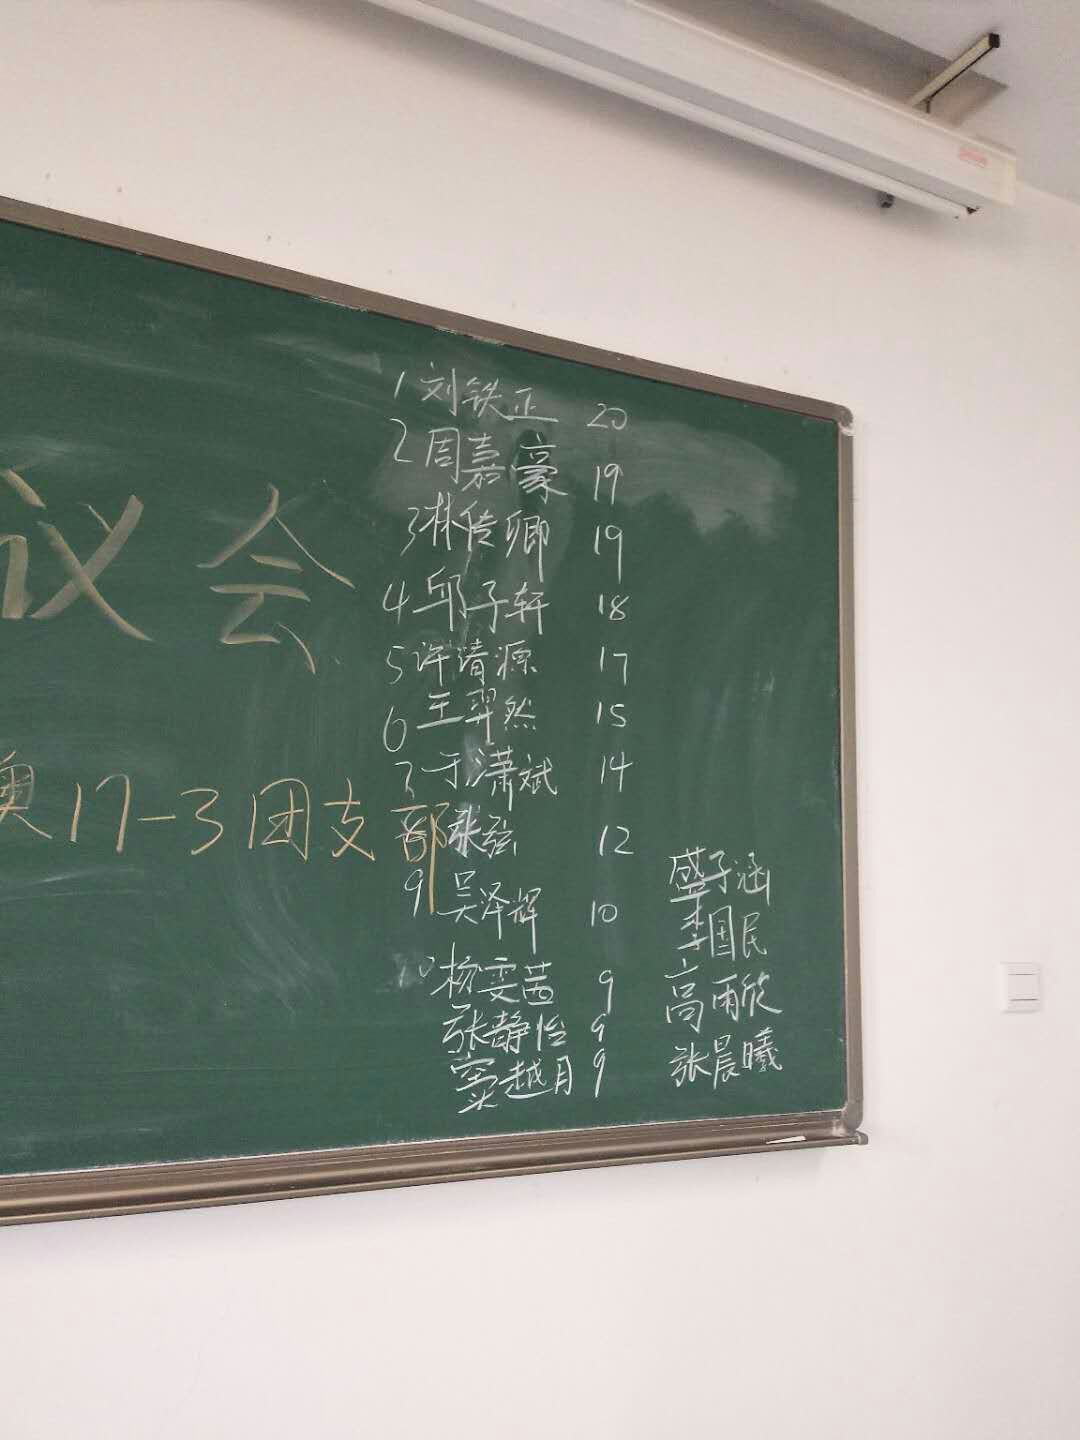 议会
奥17-3团支部
1 刘铁正 20
2 周嘉豪 19
3 林传卿 19
4 邱子轩 18
5 许清源 17
6 王羿然 15
7 于潇斌 14
8 张弦 12
9 吴泽辉 10
10 杨雯茜 9
张静怡 9
窦越月 9
盛子涵
李国民
高雨欣
张晨曦